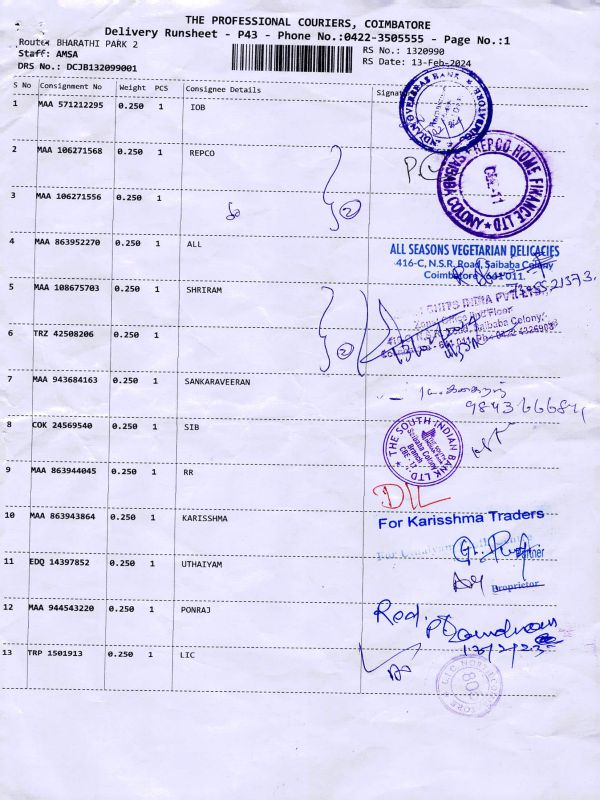 THE PROFESSIONAL COURIERS, COIMBATORE
Delivery Runsheet - P43 - Phone No.:0422-3505555 - Page No.:1
Route: BHARATHI PARK 2
RS No.: 1320990
Staff: AMSA
RS Date: 13-Feb-2024
DRS No.: DCJB132099001
S No Consignment No Weight PCS Consignee Details Signat
1 MAA 571212295 0.250 1 IOB
INDIAN OVERSEAS BANK
2 MAA 106271568 0.250 1 REPCO
REPCO HOME FINANCE LTD
COLONY
3 MAA 106271556 0.250 1
2
4 MAA 863952270 0.250 1 ALL
ALL SEASONS VEGETARIAN DELICACIES
416-C, N.S.R. Road, Saibaba Colony
Coimbatore - 641 011.
5 MAA 108675703 0.250 1 SHRIRAM
6 TRZ 42508206 0.250 1
2
Saibaba Colony,
7 MAA 943684163 0.250 1 SANKARAVEERAN
8 COK 24569540 0.250 1 SIB
THE SOUTH INDIAN BANK LTD.
Saibaba Colony
Branch
9 MAA 863944045 0.250 1 RR
10 MAA 863943864 0.250 1 KARISSHMA
For Karisshma Traders
Partner
11 EDQ 14397852 0.250 1 UTHAIYAM
Proprietor
12 MAA 944543220 0.250 1 PONRAJ
13 TRP 1501913 0.250 1 LIC